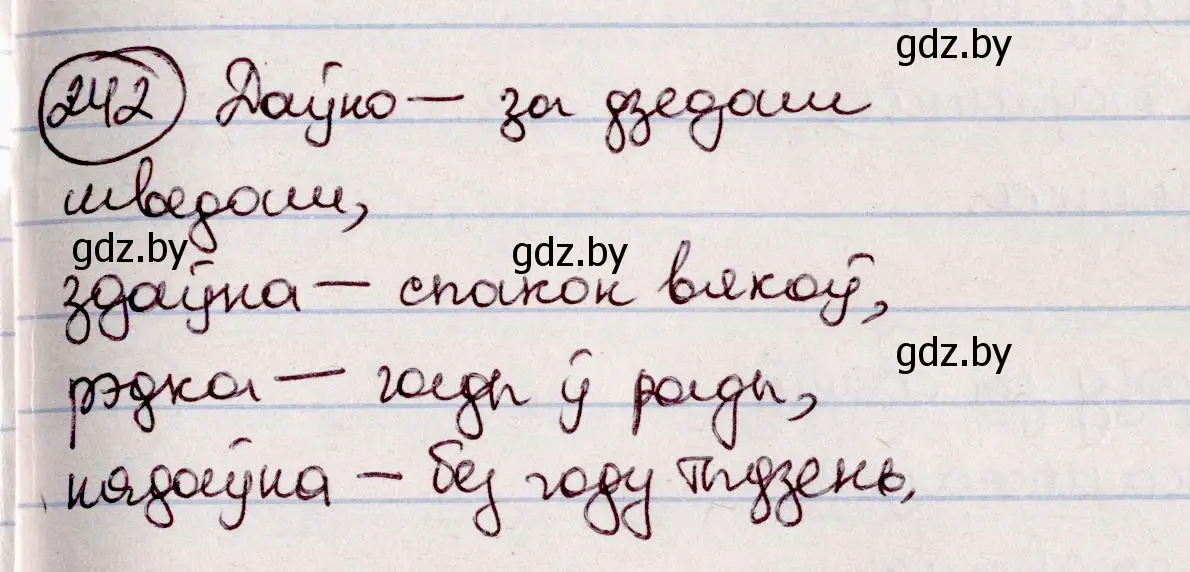 gdz.by
242 Даўно — за дзедамі
шведамі,
gdz.by gdz.by
здаўна — спакон вякоў,
gdz.by
рэдка — гады ў рады,
нядаўна — без году тыдзень.